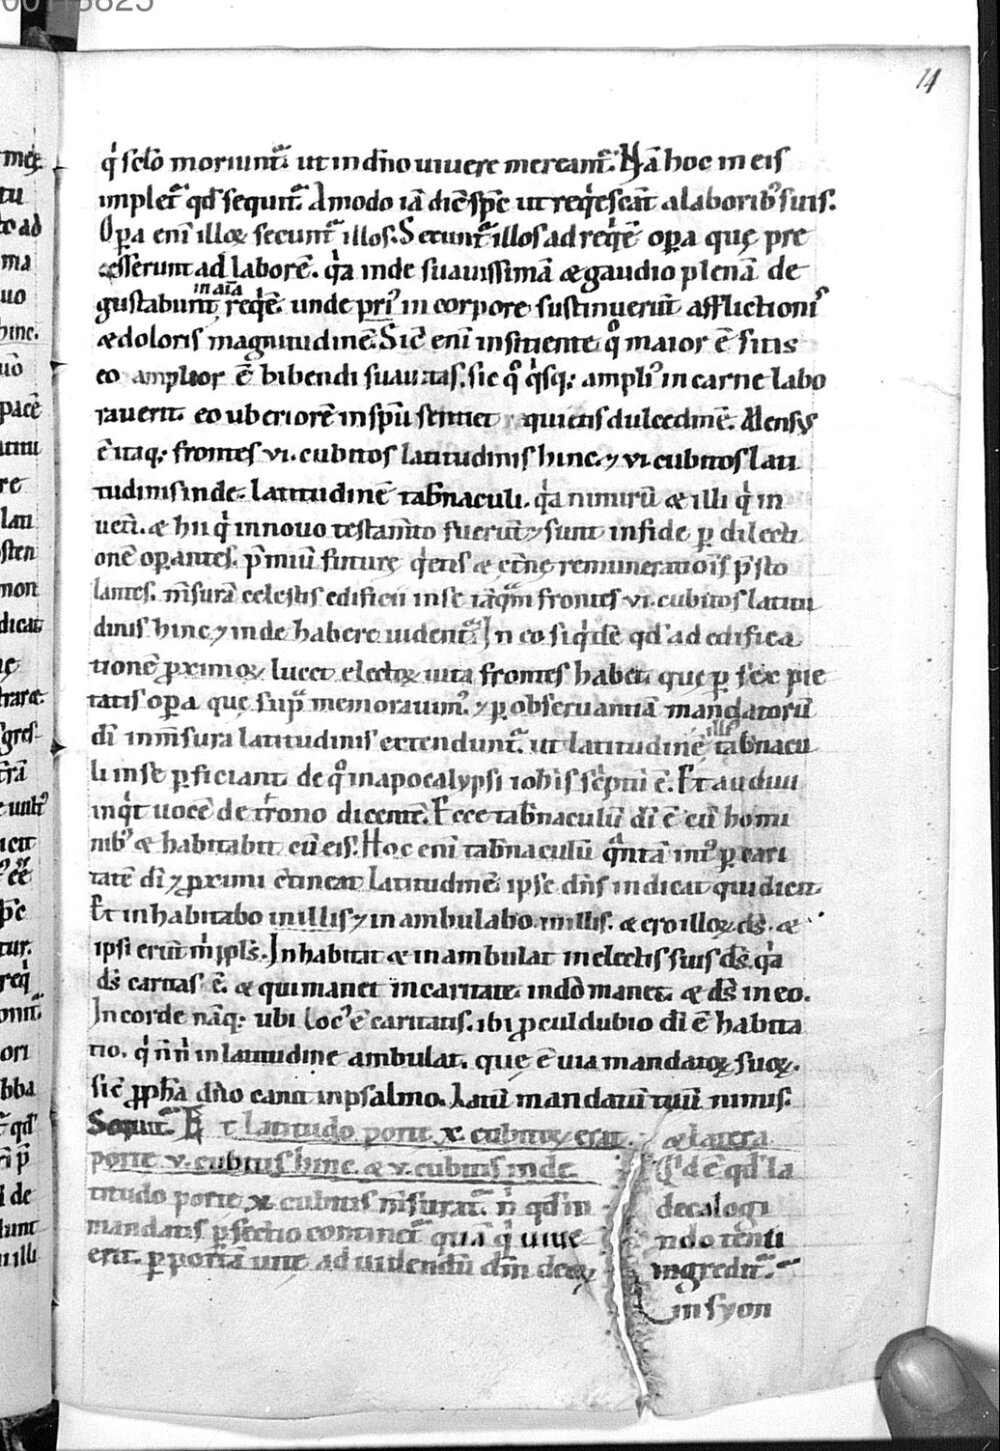 14
q̇ sclo moriunt᷑. ut in dño uiuere mereant᷑. Nā hoc in eis
implet᷑ qd̕ sequit᷑. Amodo iā dic̄ sp̄c ut req̇escāt a laborib᷒ suis.
Op̱a eni illoꝝ secunt᷑ illos. Secunt᷑ illos ad req̇ē op̱a quę pre
cesserunt ad laborē. q̇a inde suauissimā & gaudio plenā de
gustabunt in aīa req̇ē. unde pri᷒ in corpore sustinuerūt afflictionis
& doloris magnitudinē. Sic̄ eni in sitiente q̊ maior ē sitis
eo amplior ē bibendi suauitas. sic q̊ q̇sq; ampli᷒ in carne labo
rauerit. eo uberiorē in sp̄u sentiet requietis dulcedinē. Mensꝯ
ē itaq; frontes vi. cubitos latitudinis hinc. ⁊ vi. cubitos lati
tudinis inde. latitudinē tab̄naculi. q̇a nimirū & illi q̇ in
ueti. & hii q̇ in nouo testam̄to fuerūt ⁊ sunt in fide ꝑ dilecti
onē oꝑantes. p̄miū futurę q̇etis & et̄nę remunerationis p̄sto
lantes. m̄surā celestis edificii in se tāq̄m frontes vi. cubitos latitu
dinis hinc ⁊ inde habere uident᷑. In eo siq̇dē qd̕ ad edifica
tionē ꝓximoꝝ lucet electoꝝ uita frontes habet. quę ꝑ sex pie
tatis oꝑa quę sup᷑ memorauim᷒. ⁊ ꝑ obseruantiā mandatorū
dī in m̄sura latitudinis extendunt᷑. ut latitudinē illi᷒ tab̄nacu
li in se ꝑficiant. de q̊ in apocalypsi ioh̄is sc̄ptū ē. Et audiui
inq̇t uocē de trono dicentē. Ecce tab̄naculū dī ē cū homi
nib᷒ & habitabit cū eis. Hoc eni tab̄naculū q̄ntā int᷒ ꝑ cari
tatē dī ⁊ ꝓximi c̄tineat latitudinē. ipse dn̄s indicat qui dicit.
Et inhabitabo in illis ⁊ inambulabo in illis. & ero illoꝝ dś. &
ipsi erūt m̄ ipls̄. Inhabitat & inambulat in electis suis dś. q̇a
dś caritas ē. & qui manet in caritate. in dō manet. & dś in eo.
In corde nāq; ubi loc᷒ ē caritatis. ibi ꝓculdubio dī ē habita
tio. q̇ n̄n̄ in latitudine ambulat. quę ē uia mandatoꝝ suoꝝ.
sic̄ ꝓph̄a dn̄o canit in psalmo. Latū mandatū tuū nimis.
Sequit᷑. Et latitudo porte x. cubitoꝝ erat. & latera
porte v. cubitis hinc & v. cubitis inde. Qd̕ ē qd̕ la
titudo porte x. cubitis m̄surat᷑. n̄ qd̕ in decalogi
mandatis ꝑfectio continet᷑ quā q̇ uiue ndo tenu
erit. ꝑ portā uite ad uidendū dm̄ deoꝝ ingredit᷑.
in syon